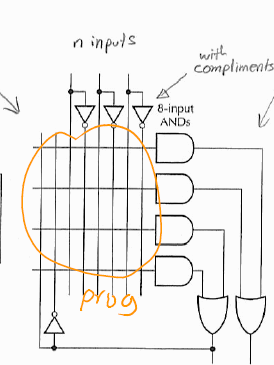 n inputs
with
compliments
8-input
ANDs
prog